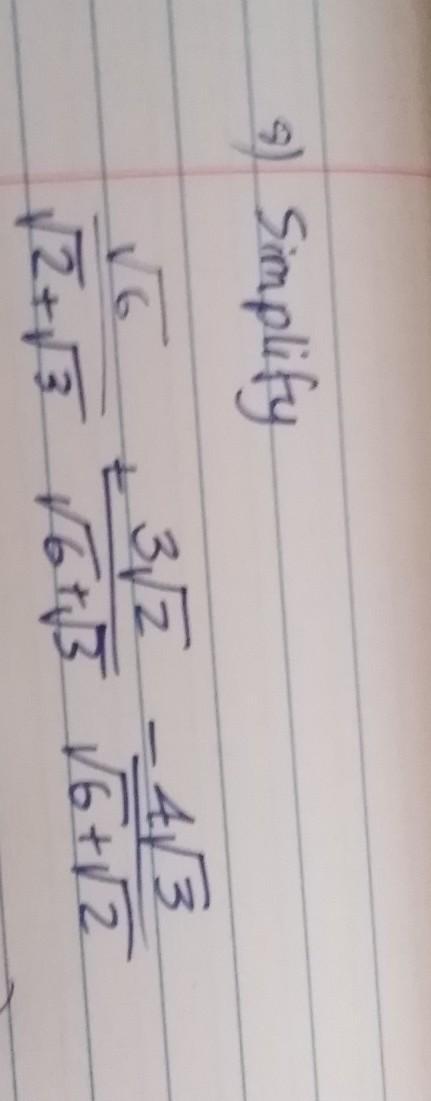 9) Simplify
√6 3√2 4√3
+ -
√2+√3 √6+√3 √6+√2